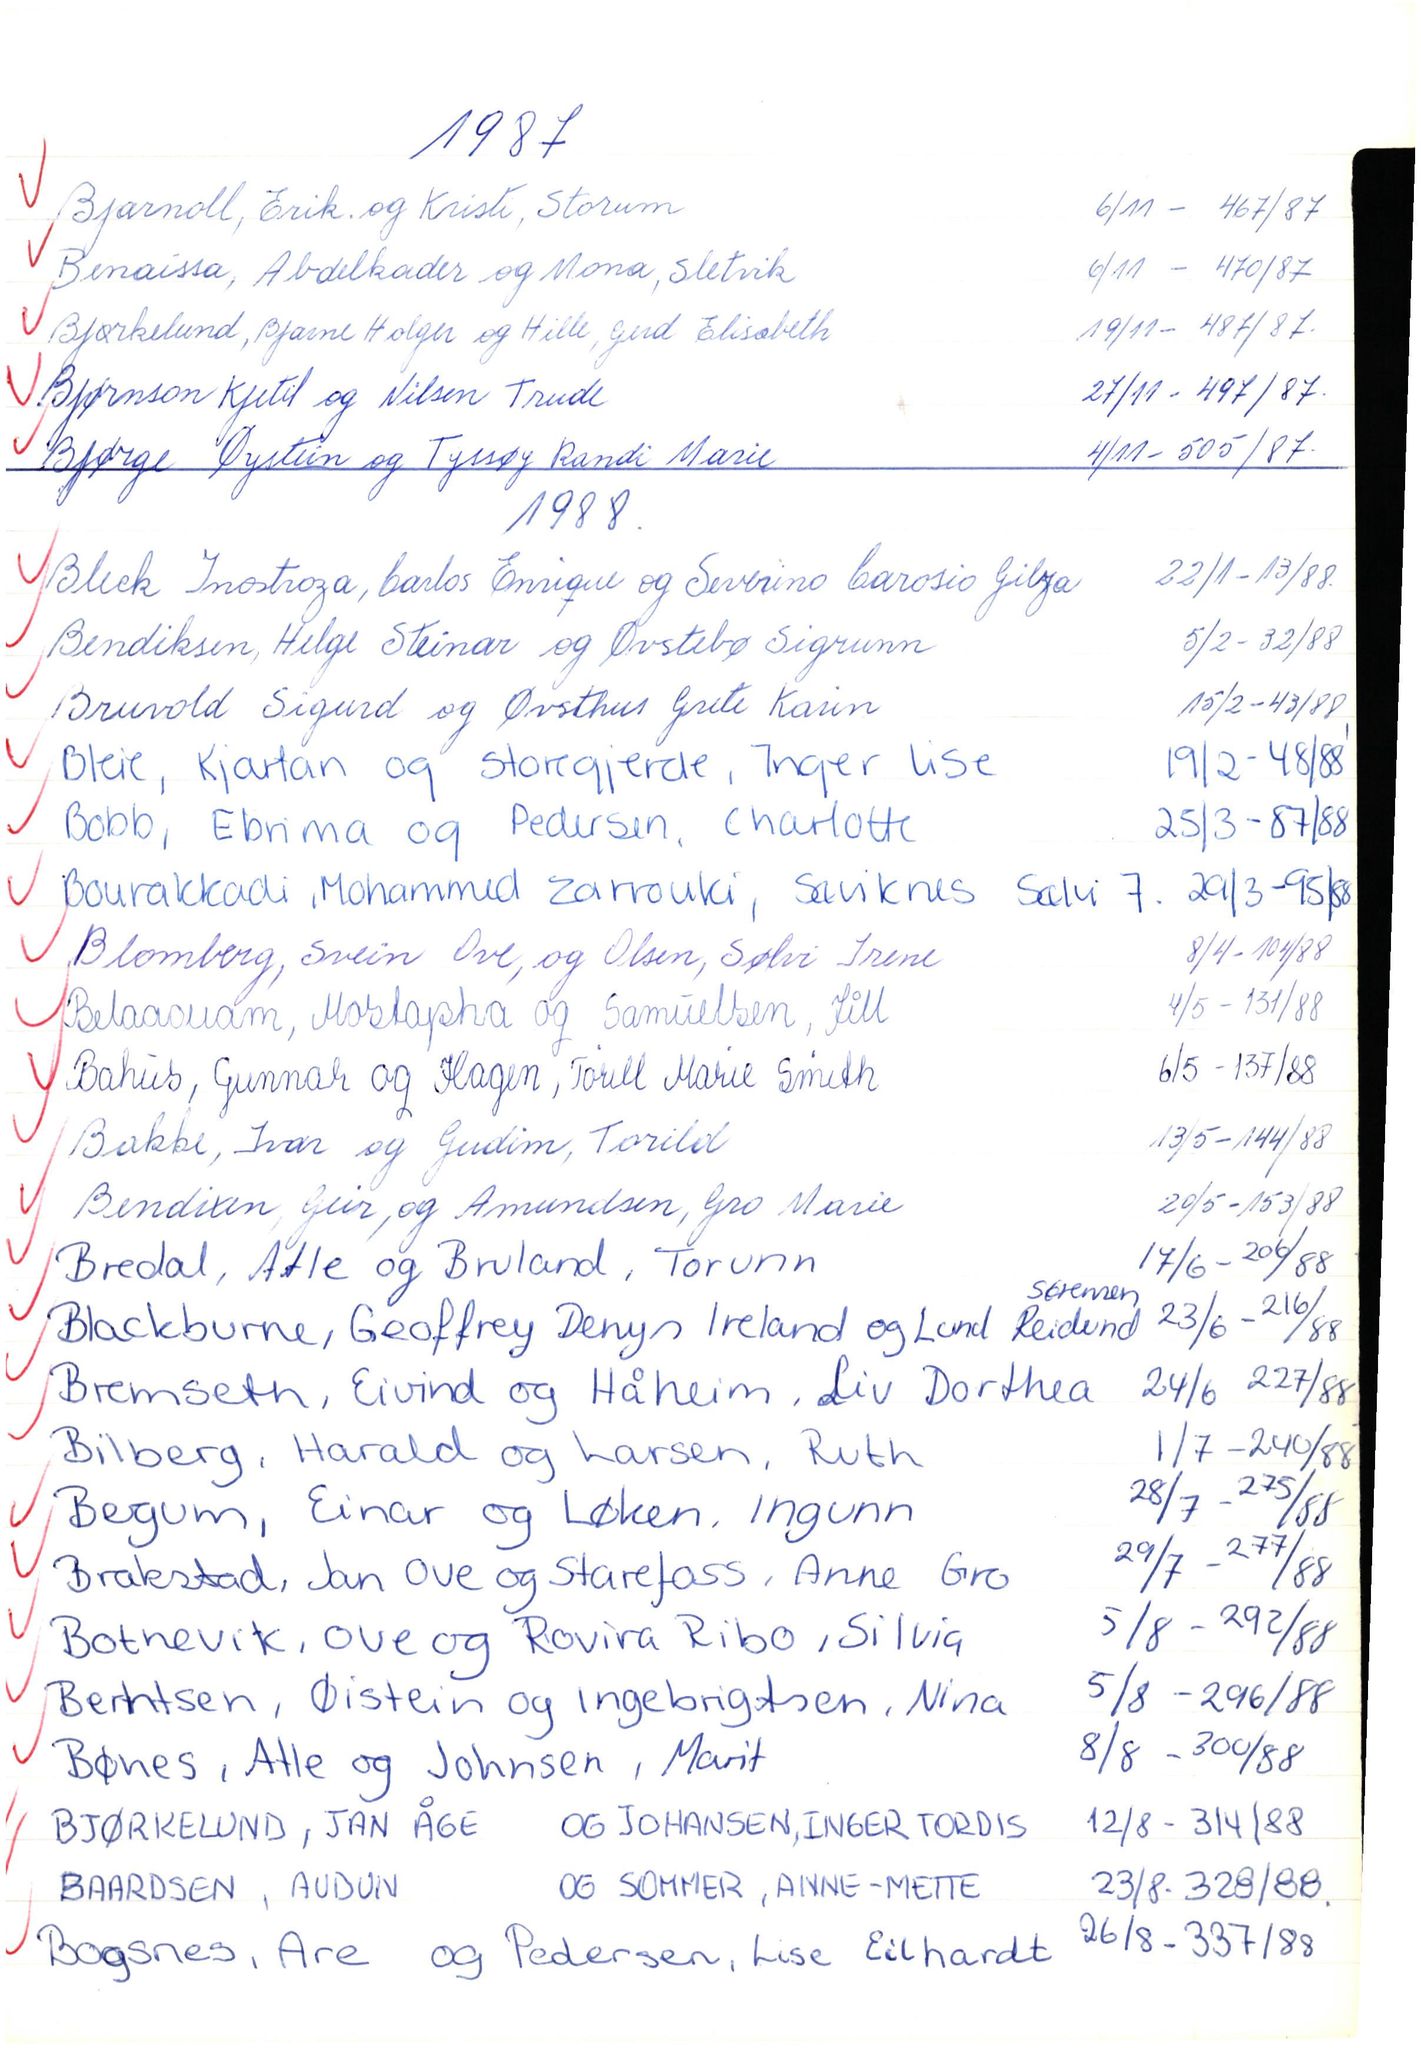 1987
Bjarnoll, Erik. og Kristi, Storum 6/11 - 467/87
Benaissa, Abdelkader og Mona, Sletvik 6/11 - 470/87
Bjørkelund, Bjarne Holger og Hille, Gerd Elisabeth 19/11 - 487/87.
Bjørnson Kjetil og Nilsen Trude 27/11 - 497/87.
Bjørge Øystein og Tyssøy Randi Marie 4/11 - 505/87.
1988.
Bleck Inostroza, Carlos Enrique og Severino Carosio Gilza 22/1 - 13/88.
Bendiksen, Helge Steinar og Øvstebø Sigrunn 5/2 - 32/88
Bruvold Sigurd og Øvsthus Grete Karin 15/2 - 43/88
Bleie, Kjartan og Storegjerde, Inger Lise 19/2 - 48/88
Bobb, Ebrima og Pedersen, Charlotte 25/3 - 87/88
Bourakkadi, Mohammed Zarrouki, Sæviknes Sølvi 7. 29/3 - 95/88
Blomberg, Svein Ove, og Olsen, Sølvi Irene 8/4 - 104/88
Belaaouam, Mostapha og Samuelsen, Jill 4/5 - 131/88
Bahus, Gunnar og Hagen, Torill Marie Smith 6/5 - 137/88
Bakke, Ivar og Gudim, Torild 13/5 - 144/88
Bendixen, Geir, og Amundsen, Gro Marie 20/5 - 153/88
Bredal, Atle og Bruland, Torunn 17/6 - 206/88
Sørensen
Blackburne, Geoffrey Denys Ireland og Lund Reidund 23/6 - 216/88
Bremseth, Eivind og Håheim, Liv Dorthea 24/6 227/88
Bilberg, Harald og Larsen, Ruth 1/7 - 240/88
Begum, Einar og Løken, Ingunn 28/7 - 275/88
Brakstad, Jan Ove og Starefoss, Anne Gro 29/7 - 277/88
Botnevik, Ove og Rovira Ribo, Silvia 5/8 - 292/88
Berntsen, Øistein og Ingebrigtsen, Nina 5/8 - 296/88
Bønes, Atle og Johnsen, Marit 8/8 - 300/88
BJØRKELUND, JAN ÅGE OG JOHANSEN, INGER TORDIS 12/8 - 314/88
BAARDSEN, AUDUN OG SOMMER, ANNE-METTE 23/8 - 328/88.
Bogsnes, Are og Pedersen, Lise Eilhardt 26/8 - 337/88